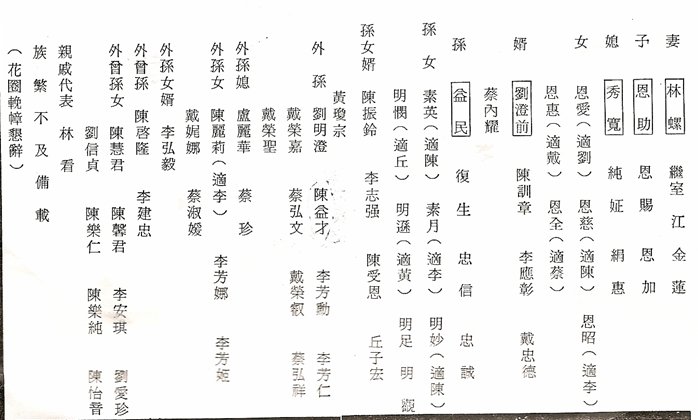 妻 林螺 繼室 江金蓮
子 恩助 恩賜 恩加
媳 秀寬 純姃 絹惠
女 恩愛（適劉） 恩慈（適陳） 恩昭（適李）
恩惠（適戴） 恩全（適蔡）
婿 劉澄前 陳訓章 李應彰 戴忠德
蔡內耀
孫 益民 復生 忠信 忠誠
孫女 素英（適陳） 素月（適李） 明妙（適陳）
明憫（適丘） 明遜（適黃） 明足 明觀
孫女婿 陳振鈴 李志强 陳受恩 丘子宏
黃瓊宗
外孫 劉明澄 陳益才 李芳動 李芳仁
戴榮嘉 蔡弘文 戴榮叡 蔡弘祥
戴榮聖
外孫媳 盧麗華 蔡珍
外孫女 陳麗莉（適李） 李芳娜 李芳姬
戴娓娜 蔡淑媛
外孫女婿 李弘毅
外曾孫 陳啓隆 李建忠
外曾孫女 陳慧君 陳馨君 李安琪 劉愛珍
劉信貞 陳樂仁 陳樂純 陳怡晉
親戚代表 林看
族繁不及備載
（花圈輓幛懇辭）